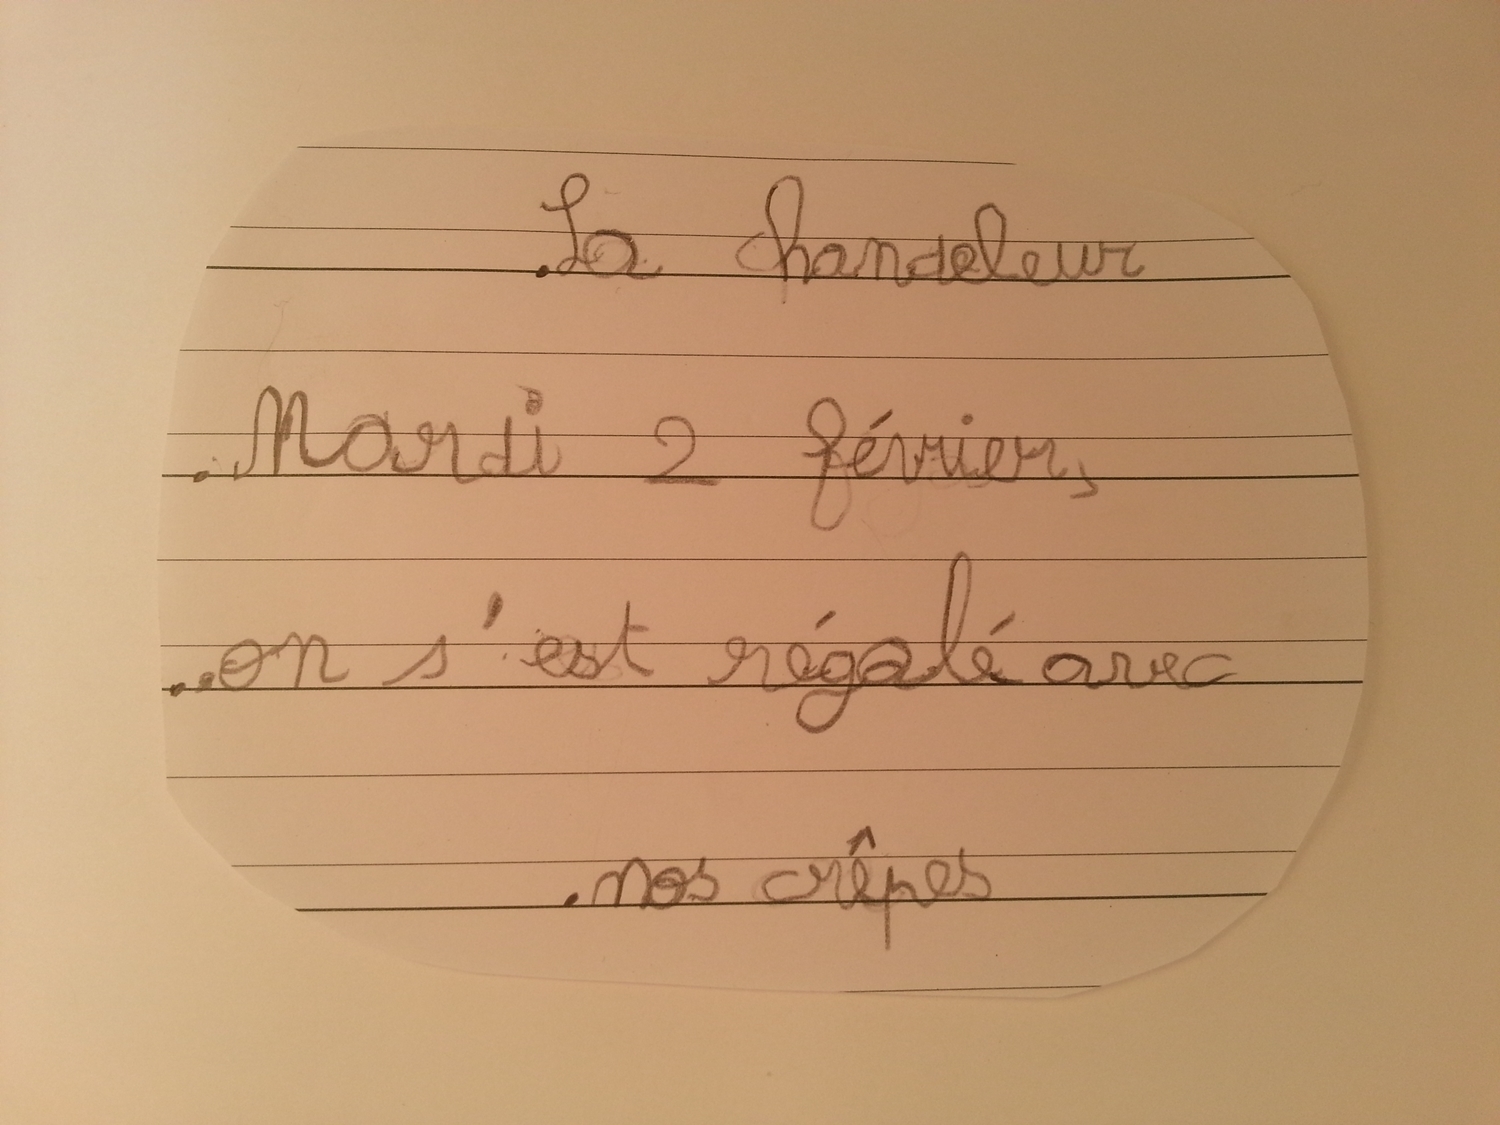 La chandeleur
Mardi 2 février,
on s'est régalé avec
nos crêpes